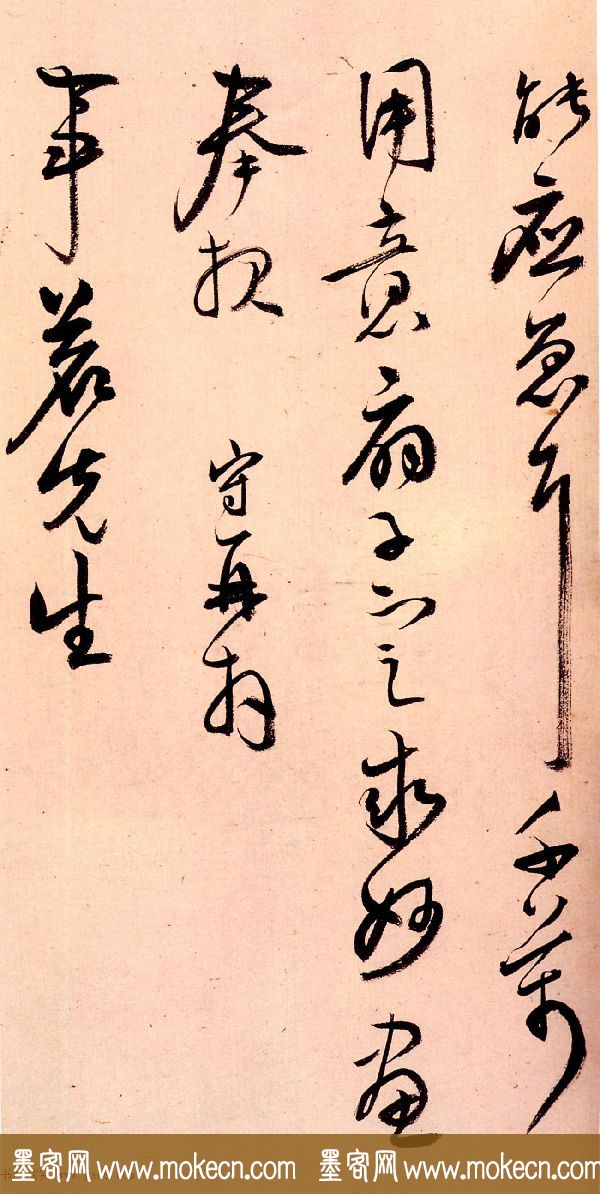 能應急耳千萬
用意扇子亦足求妙畫
奉
守再拜
事茗先生
墨客网 www.mokecn.com 墨客网 www.mokecn.com